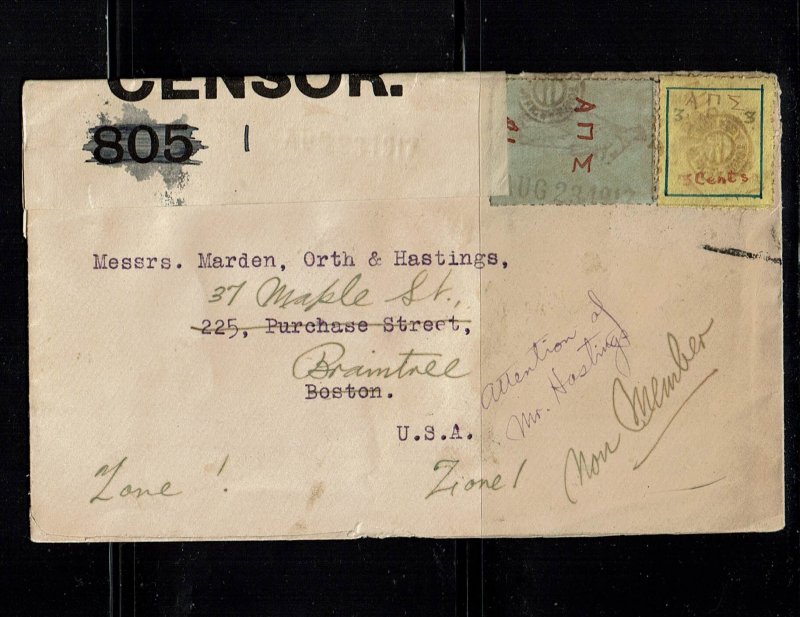 CENSOR.
805 1
Α Π Σ
AUG 23 1917
Α Π Σ
3. 3
3 Cents
Messrs. Marden, Orth & Hastings,
37 Maple St.,
225, Purchase Street,
Braintree
Boston.
U.S.A.
Attention of
Mr. Hastings
Non Member
Zone !
Zione !